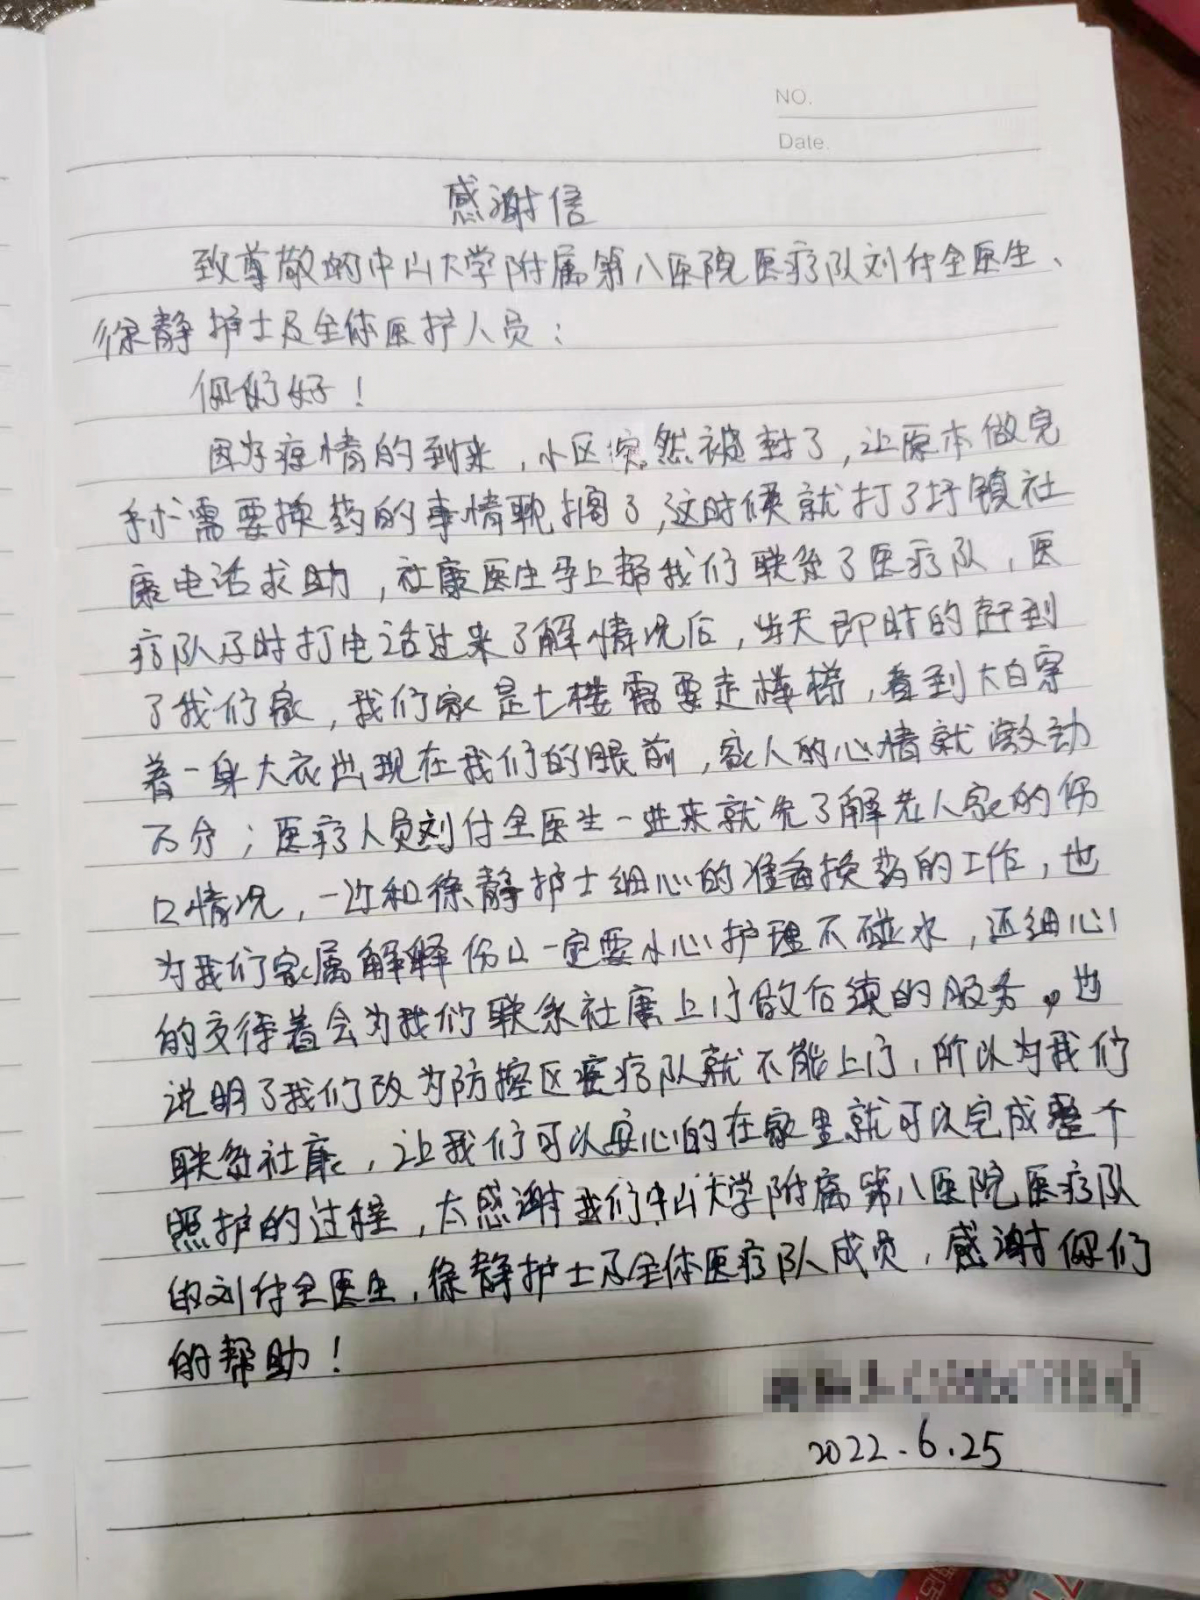 NO.
Date.
感谢信
致尊敬的中山大学附属第八医院医疗队刘付全医生、
徐静护士及全体医护人员：
你们好！
因为疫情的到来，小区突然被封了，让原本做完
手术需要换药的事情耽搁了，这时候就打了圩镇社
康电话求助，社康医生马上帮我们联系了医疗队，医
疗队及时打电话过来了解情况后，当天即时的赶到
了我们家，我们家是七楼需要走楼梯，看到大白穿
着一身大衣出现在我们的眼前，家人的心情就激动
万分；医疗人员刘付全医生一进来就先了解老人家的伤
口情况，一边和徐静护士细心的准备换药的工作，也
为我们家属解释伤口一定要小心护理不碰水，还细心
的交待着会为我们联系社康上门做后续的服务，也
说明了我们改为防控区医疗队就不能上门，所以为我们
联系社康，让我们可以安心的在家里就可以完成整个
照护的过程，太感谢我们中山大学附属第八医院医疗队
的刘付全医生，徐静护士及全体医疗队成员，感谢你们
的帮助！
2022.6.25